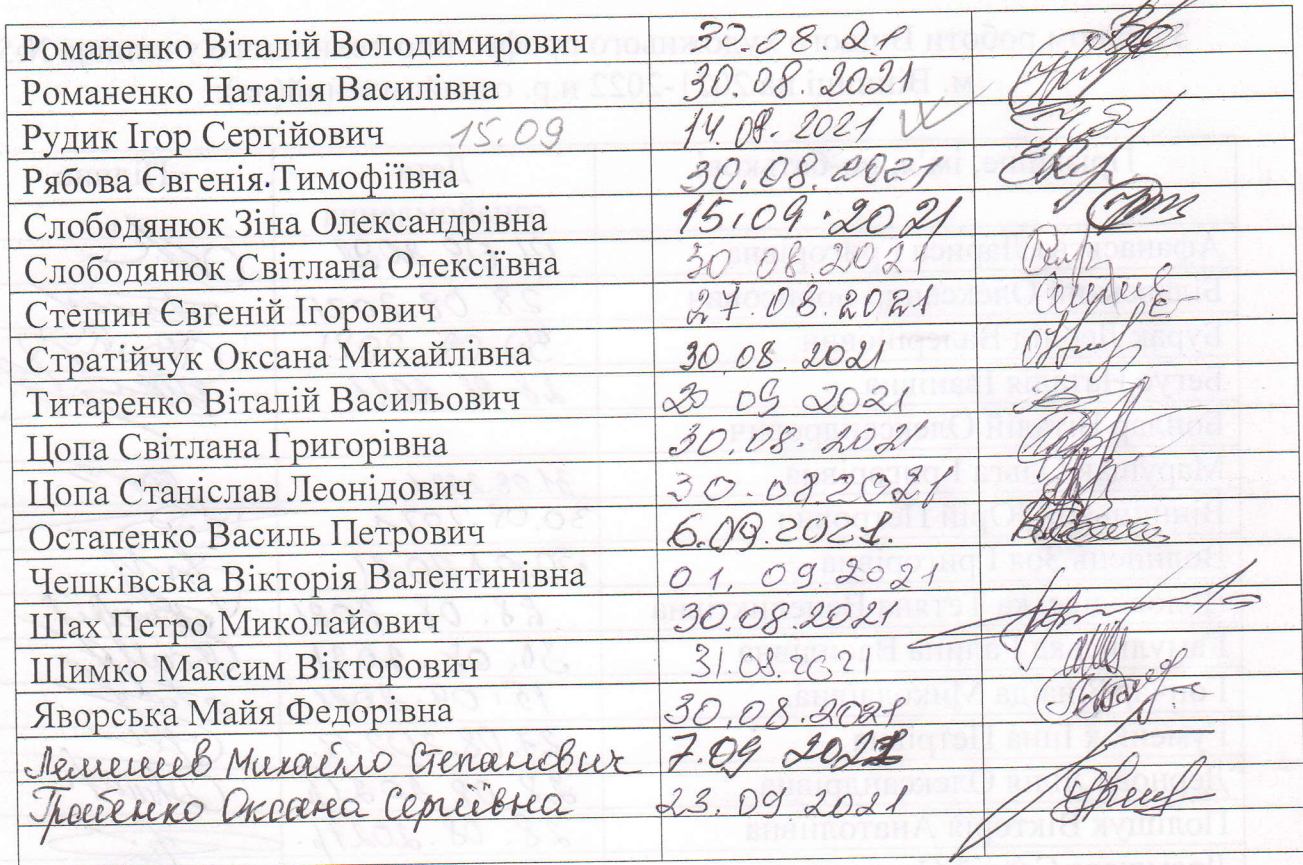 Романенко Віталій Володимирович 27.08.21
Романенко Наталія Василівна 30.08.2021
Рудик Ігор Сергійович 15.09 14.09.2021
Рябова Євгенія Тимофіївна 30.08.2021
Слободянюк Зіна Олександрівна 15.09.2021
Слободянюк Світлана Олексіївна 30 08.2021
Стешин Євгеній Ігорович 27.08.2021
Стратійчук Оксана Михайлівна 30.08.2021
Титаренко Віталій Васильович 09 2021
Цопа Світлана Григорівна 30.08.2021
Цопа Станіслав Леонідович 30.08 2021
Остапенко Василь Петрович 6.09.2021.
Чешківська Вікторія Валентинівна 01.09.2021
Шах Петро Миколайович 30.08.2021
Шимко Максим Вікторович 31.08.2021
Яворська Майя Федорівна 30.08.2021
Лемешев Михайло Степанович 7.09 2021
Оксана Сергіївна 23.09.2021